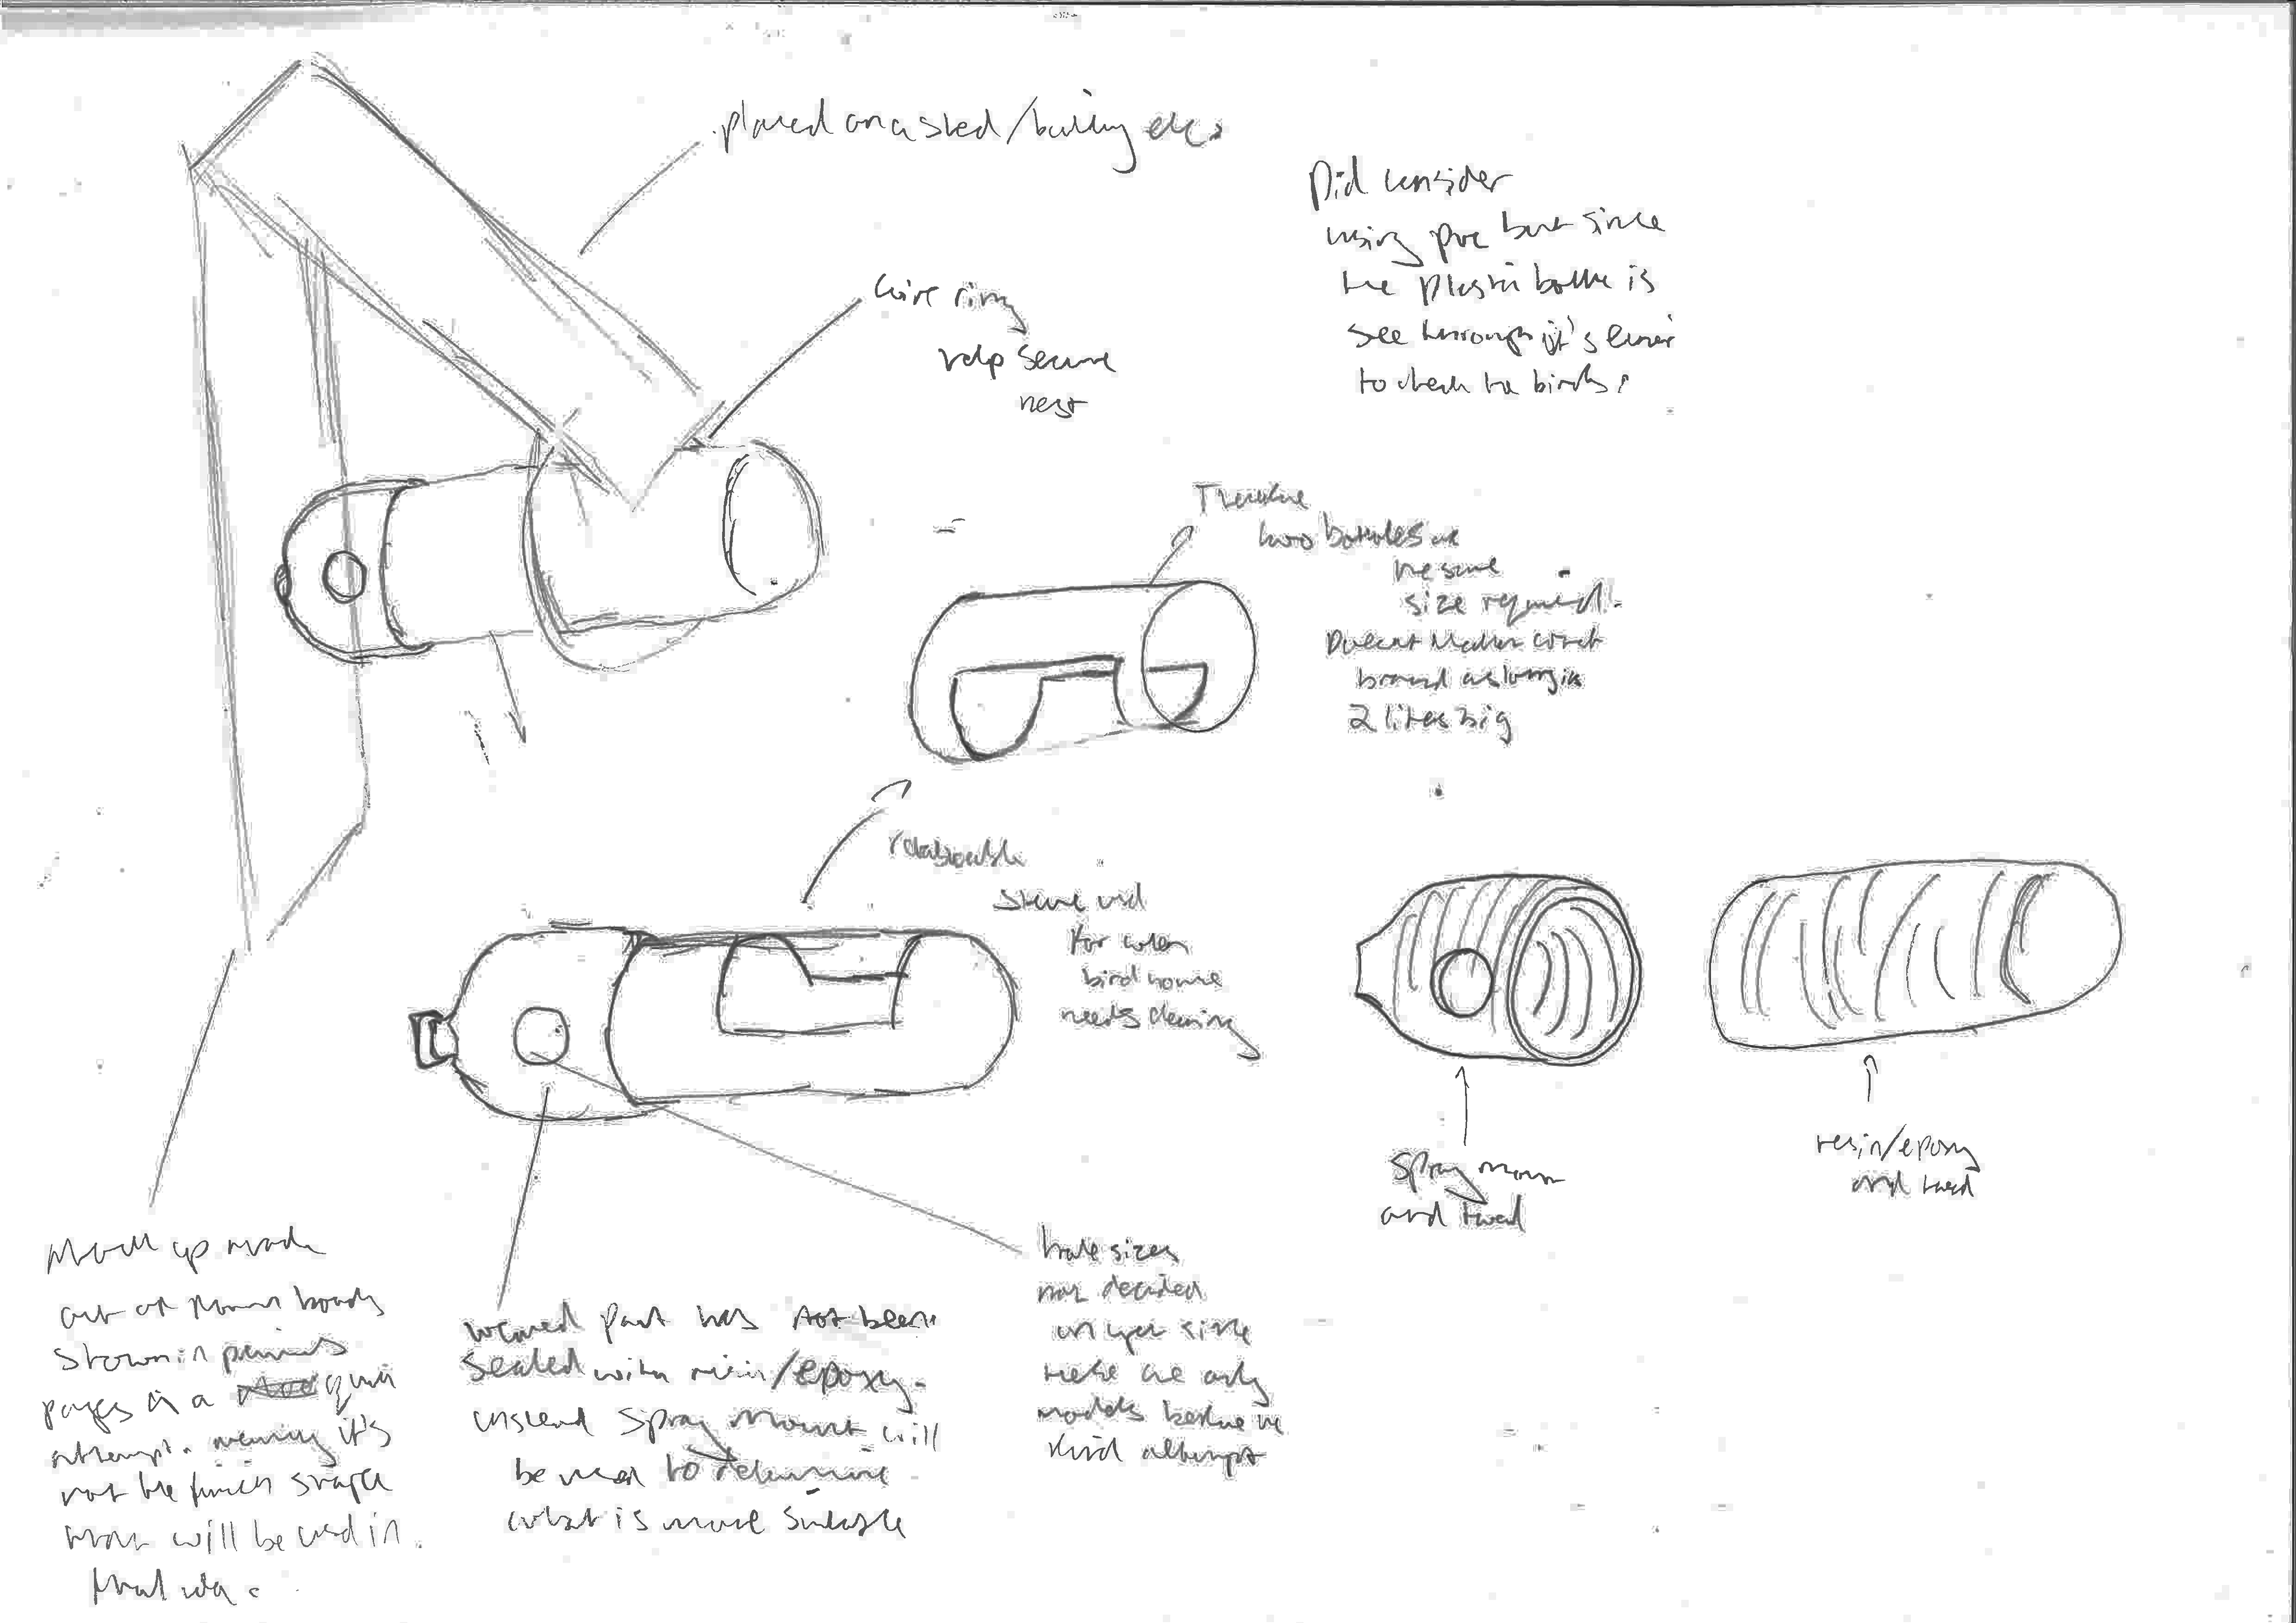 placed on a shed/building etc.
wire ring
help secure
nest
Did consider
using pvc but since
the plastic bottle is
see through it's easier
to check the birds.
Therefore
two bottles are
the same
size required.
Doesnt matter what
brand as long its
2 litres big
rotatable
sleeve used
for when
bird home
needs cleaning
spray mount
and
resin/epoxy
and
Mock up made
out of boards
shown in previous
pages is a quick
attempt. meaning it's
not the finish shape
that will be used in
final idea.
part has not been
sealed with resin/epoxy.
instead spray mount will
be used to determine
what is more suitable
hole sizes
not decided
on yet since
these are only
models before the
third attempt